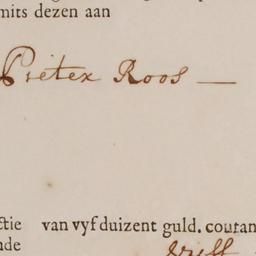 mits dezen aan
Pieter Roos —
ctie van vyf duizent guld. couran
nde